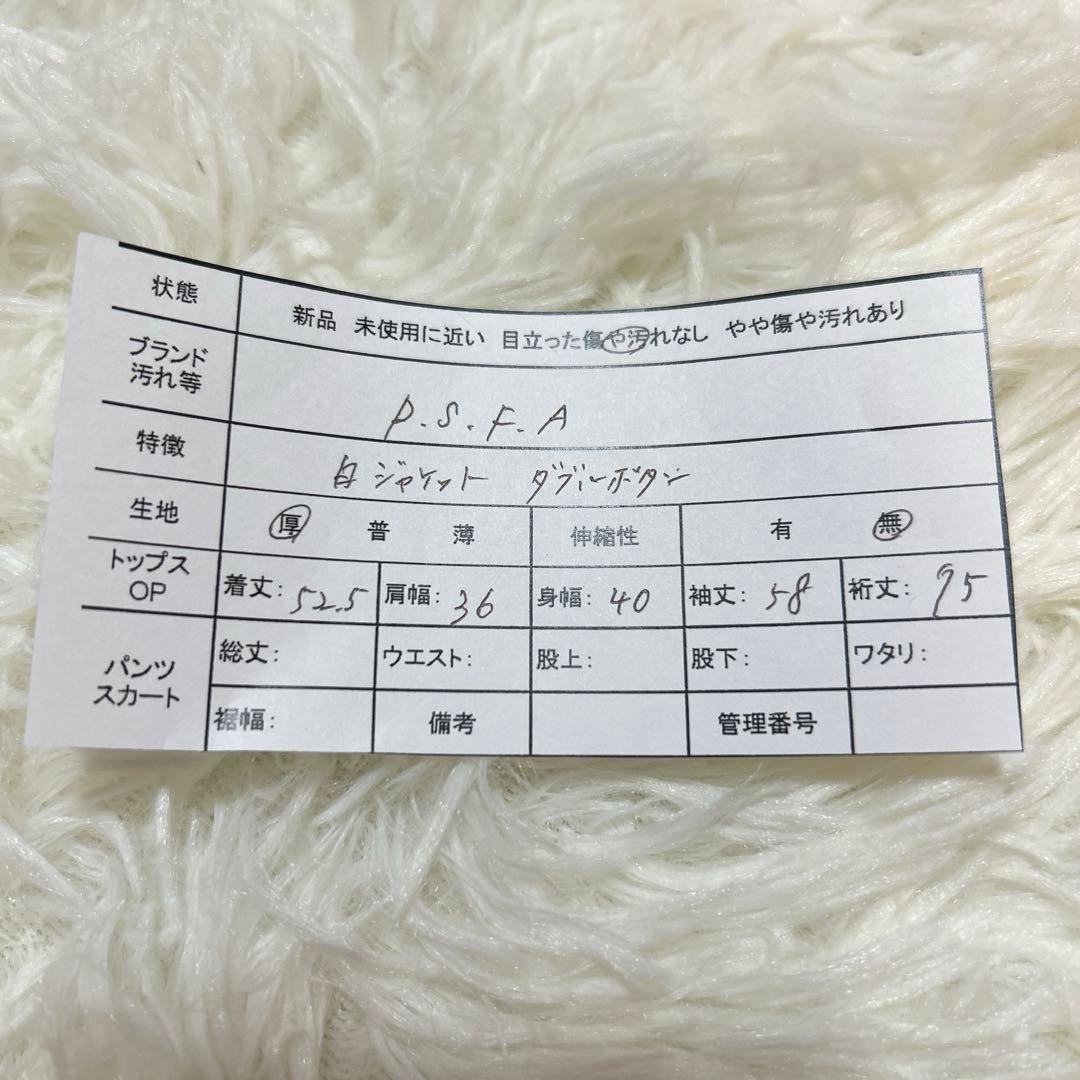 状態 新品 未使用に近い 目立った傷や汚れなし やや傷や汚れあり
ブランド
汚れ等 P.S.F.A
特徴 白ジャケット ダブルボタン
生地 厚 普 薄 伸縮性 有 無
トップス
OP 着丈: 52.5 肩幅: 36 身幅: 40 袖丈: 58 裄丈: 75
パンツ
スカート 総丈: ウエスト: 股上: 股下: ワタリ:
裾幅: 備考 管理番号